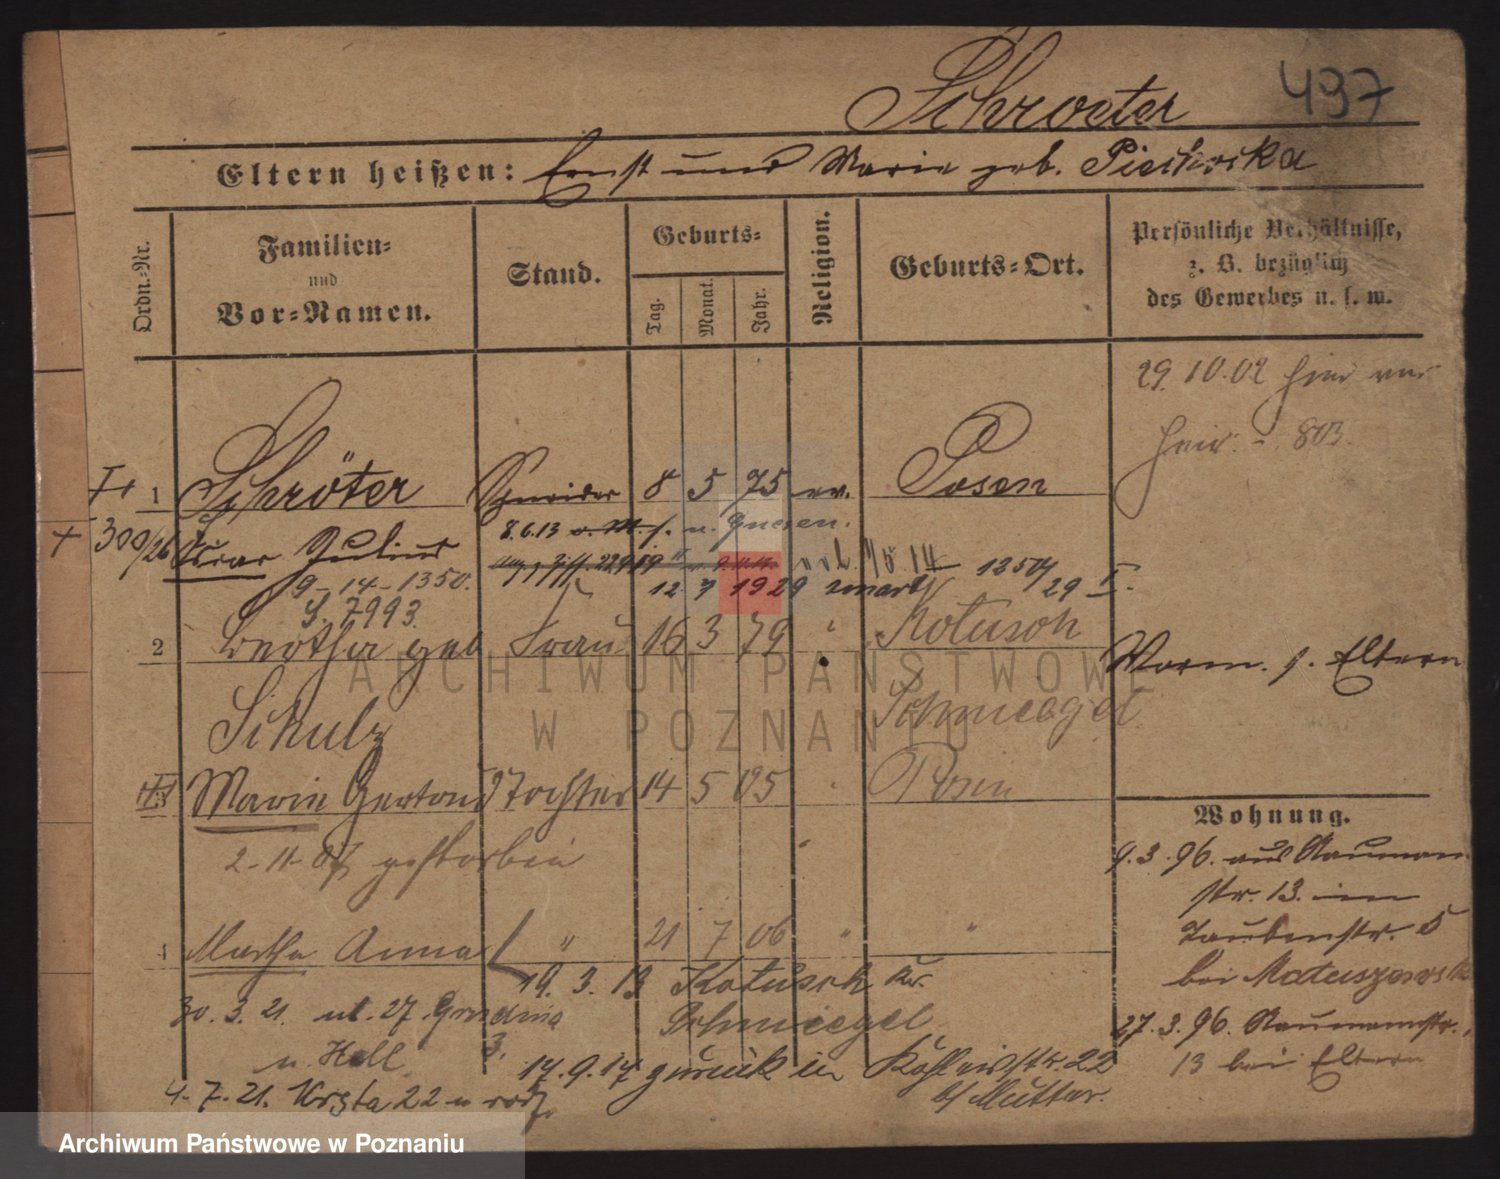 Schroeter 497
Eltern heißen: Ernst und Marie geb.
Ordn.-Nr.
Familien-
und
Vor-Namen.
Stand.
Geburts-
Tag. Monat. Jahr.
Religion.
Geburts-Ort.
Persönliche Verhältnisse,
z. B. bezüglich
des Gewerbes u. s. w.
29.10.02
803.
1 Schröter Schneider 8 5 75 ev. Posen
300/26 Oscar Julius 8.6.13 n. Gnesen.
9-14-1350.
12 7 1929 zmarł 1250/29
7993
2 Bertha geb Frau 16 3 79 " Kotusch
Schulz Schmiegel
Worm. s. Eltern
3 Marie Gertrud Tochter 14 5 05 " Posen
2-11-07 gestorben
4 Martha Anna " 21 7 06 " "
19.3.13 Kotusch Kr.
Schmiegel
30.3.21. ul. 27 Grudnia
3.
u. Hell
17.9.17 zurück in 22
b/ Mutter.
4.7.21. 22 u rodz.
Wohnung.
9.3.96. aus Naumann
str. 13. in
Taubenstr. 5
bei Matuszewski
27.3.96. Naumannstr.
13 bei Eltern
ARCHIWUM PAŃSTWOWE
W POZNANIU
Archiwum Państwowe w Poznaniu